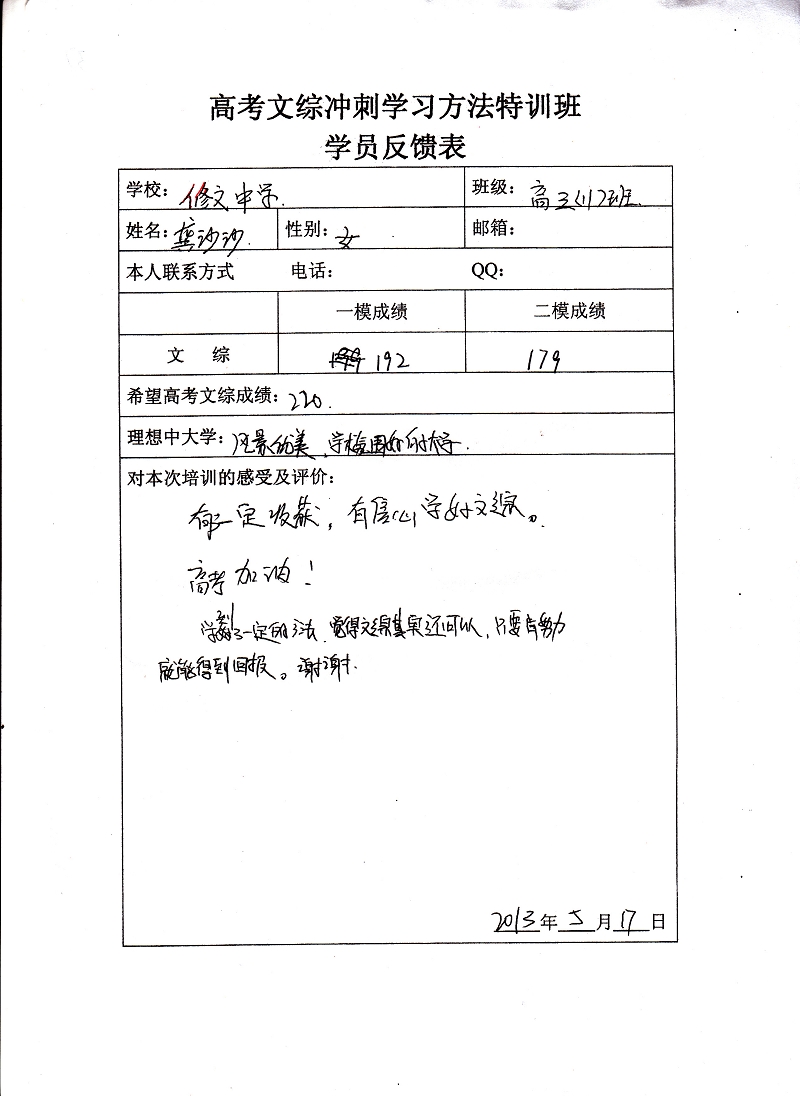 高考文综冲刺学习方法特训班
学员反馈表
学校：修文中学. 班级：高三(17)班.
姓名：龚沙沙. 性别：女. 邮箱：
本人联系方式 电话： QQ：
一模成绩 二模成绩
文 综 192 179
希望高考文综成绩：220.
理想中大学：风景优美、学校周边好的大学.
对本次培训的感受及评价：
有了一定收获，有信心学好文综。
高考加油！
学到了一定的方法、觉得文综其实还可以，只要有努力
就能得到回报。谢谢！
2013年5月17日